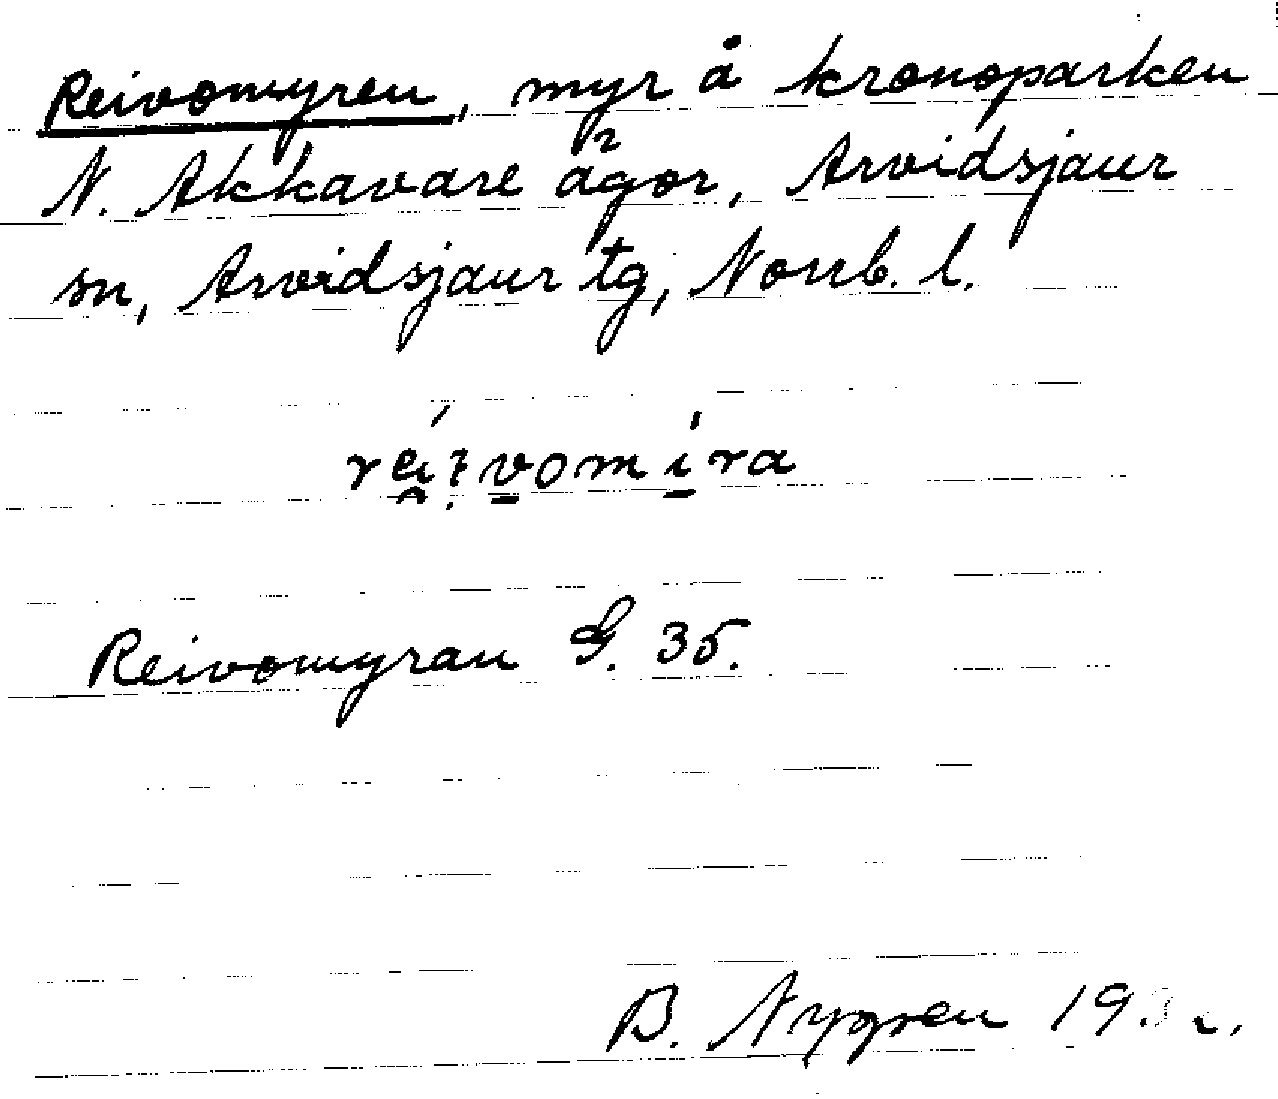 Reivomyren, myr å kronoparken
N. Akkavare ägor, Arvidsjaur
sn, Arvidsjaur tg, Norrb. l.
Reivomyran G. 35.
B. Nygren